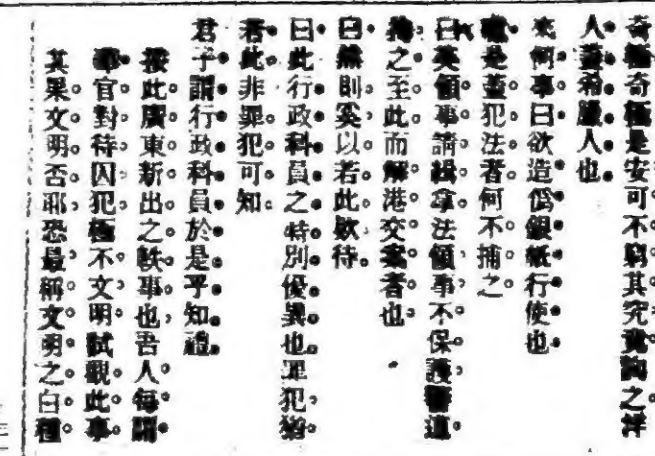 奇極奇極是安可不窮其究竟詢之洋
人蓋希臘人也
來何事曰欲造僞銀紙行使也
是蓋犯法者何不捕之
曰英領事請緝拿法領事不保護
之至此而解港交案者也
曰然則奚以若此欵待
曰此行政科員之特別優異也罪犯
若此非罪犯可知
君子謂行政科員於是乎知禮
按此廣東新出之軼事也吾人每聞
華官對待囚犯極不文明試觀此事
其果文明否耶恐最稱文明之白種